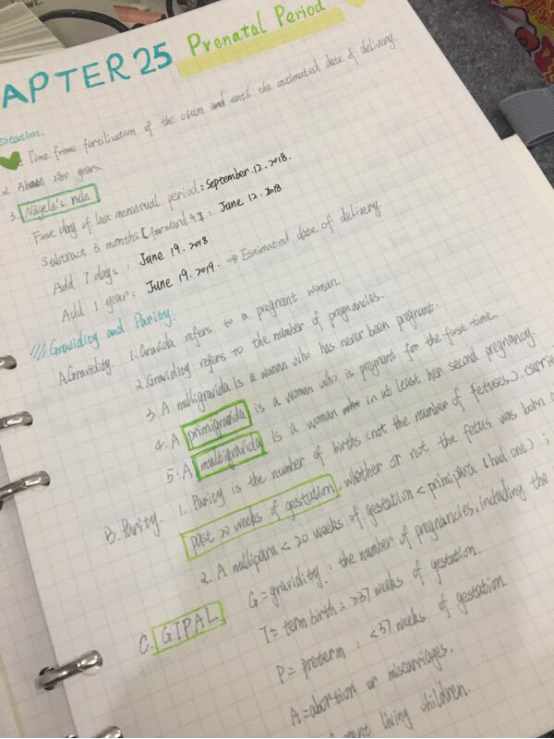 APTER 25 Prenatal Period
estation.
Time from fertilization of the ovum and until the estimated date of delivery.
2. About 280 years
3. Nägele's rule
First day of last menstrual period: September.12.2018.
Subtract 3 months [forward 9]: June 12.2018
Add 7 days: June 19.2018
Add 1 year: June 19.2019. ⇒ Estimated date of delivery
/// Gravidity and Parity
A. Gravidity. 1. Gravida refers to a pregnant woman.
2. Gravidity refers to the number of pregnancies.
3. A nulligravida is a woman who has never been pregnant.
4. A primigravida is a woman who is pregnant for the first time.
5. A multigravida is a woman who in at least her second pregnancy.
B. Parity. 1. Parity is the number of births (not the number of fetuses). carri
past 20 weeks of gestation, whether or not the fetus was born
2. A nullipara < 20 weeks of gestation < primipara (had one);
C. GTPAL G = gravidity: the number of pregnancies, including the
T = term birth: >37 weeks of gestation.
P = preterm: <37 weeks of gestation.
A = abortion or miscarriages.
living children.